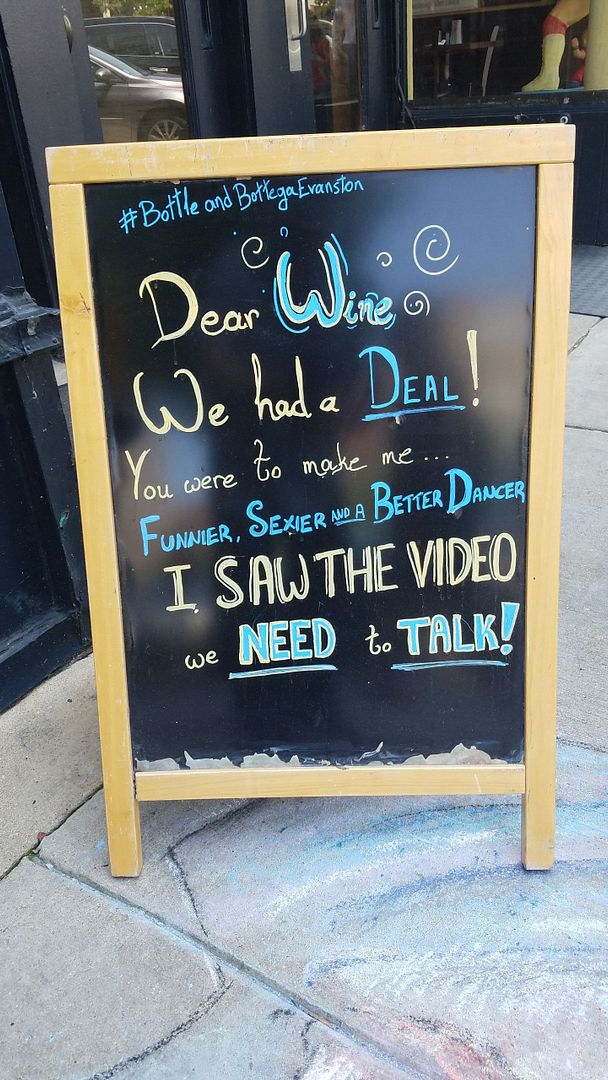 #Bottle and Bottega Evanston
Dear Wine
We had a DEAL!
You were to make me...
FUNNIER, SEXIER AND A BETTER DANCER
I SAW THE VIDEO
we NEED to TALK!